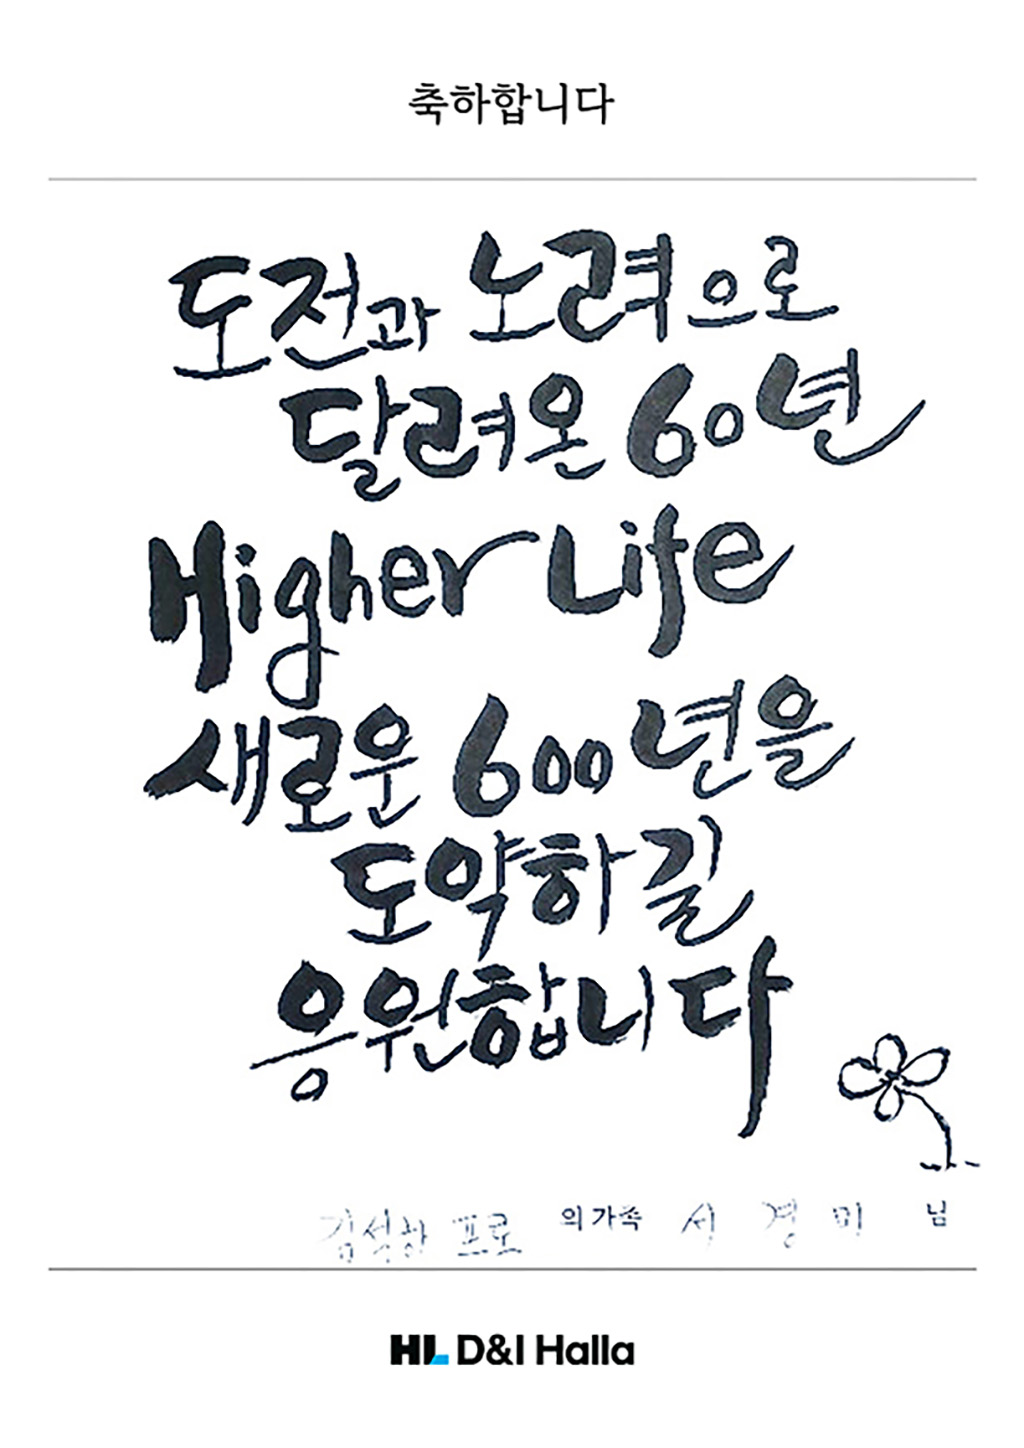 축하합니다
도전과 노려으로
달려온 60년
Higher Life
새로운 600년을
도약하길
응원합니다
김석환 프로 의가족 서 경 미 님
HL D&I Halla